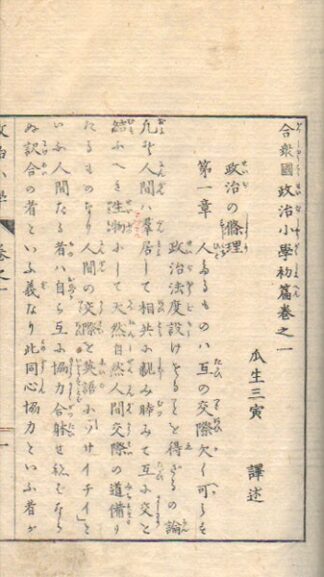 合衆國政治小學初篇巻之一
瓜生三寅 譯述
政治の條理
第一章 人たるものハ互の交際欠く可らす
政治法度設けさることを得さるの論
凡そ人間ハ羣居して相共に親み睦みて互に交と
結ふへき性物にして天然自然人間交際の道備り
たるものなり人間の交際を英語にソサイチイと
いふ人間たる者ハ自ら互に協力合躰せ欲はなら
ぬ訳合の者といふ義なり此同心協力といふ者が
政治小學 巻之一 一